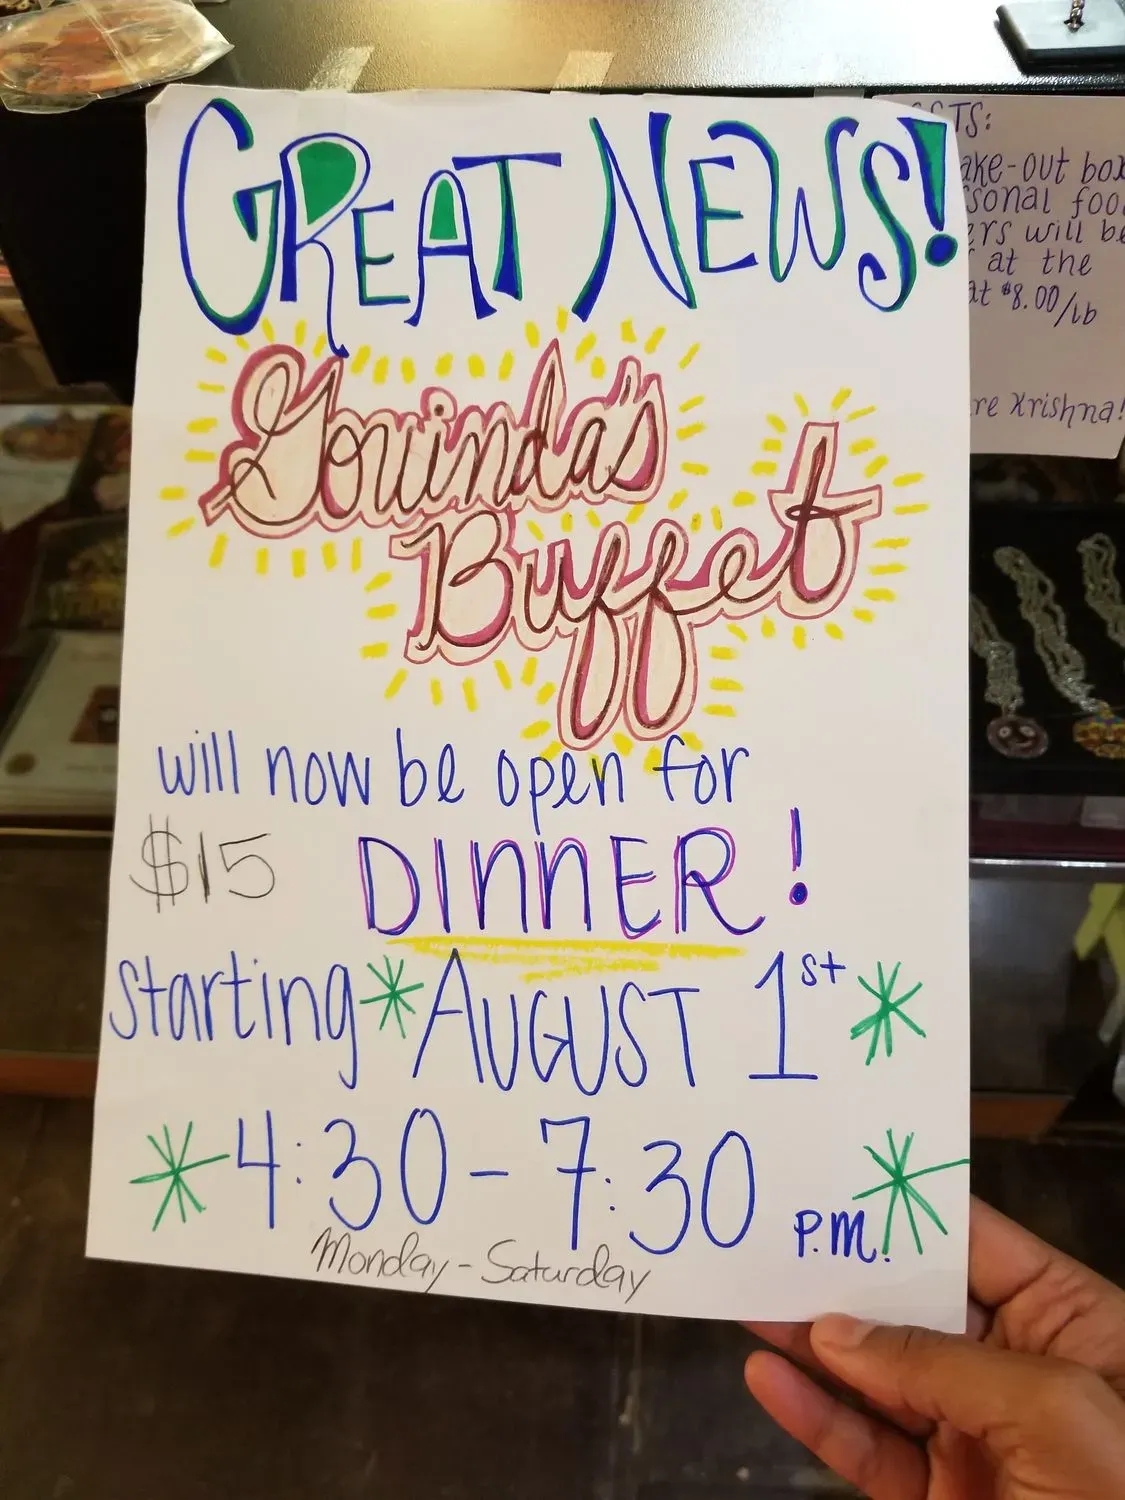 GREAT NEWS!
Govinda's
Buffet
will now be open for
$15 DINNER!
starting *AUGUST 1st*
*4:30-7:30 P.M.*
Monday-Saturday
will be
at the
at $8.00/lb
Krishna!